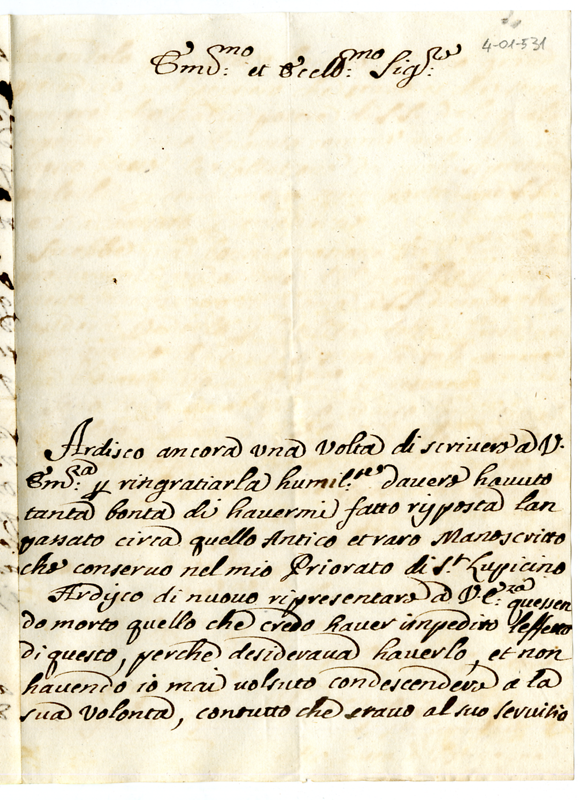 4-01-531
Em.mo et Eccell.mo Sig.re
Ardisco ancora una Volta di scrivere a V.
Em.a p ringratiarla humil.te d'avere havuto
tanta bonta di havermi fatto risposta lan
passato circa quello Antico et raro Manoscritto
che conservo nel mio Priorato di S.t Lupicino
Ardisco di nuovo ripresentare a V. E.za quessen
do morto quello che credo haver impedito l'effetto
di questo, perche desiderava haverlo, et non
havendo io mai volsuto condescendere a la
sua Volonta, contutto che eravo al suo servitio